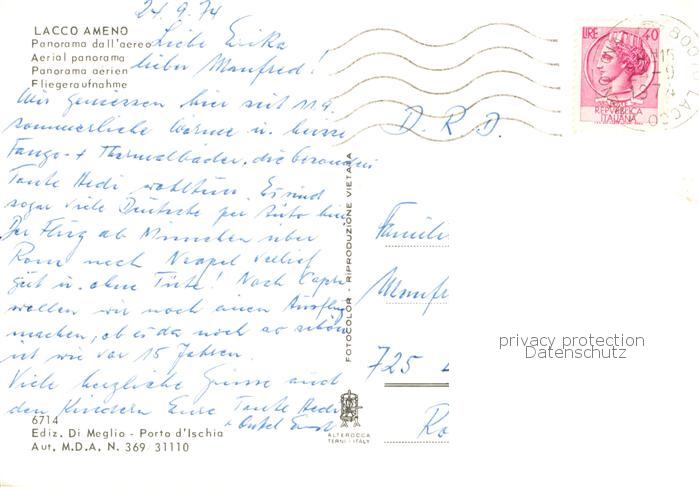 24.9.74
LACCO AMENO
Panorama dall'aereo
Aerial panorama
Panorama aerien
Fliegeraufnahme
Liebe Erika
lieber Manfred!
Wir geniessen hier seit 11.9.
sommerliche Wärme u. heisse
Fango- + Thermalbäder, die besonders
Tante Hedi wohltun. Es sind
sogar viele Deutsche per Auto hier
Der Flug ab München über
Rom nach Neapel verlief
gut u. ohne Tüte! Nach Capri
wollen wir noch einen Ausflug
machen, ob es da noch so schön
ist wie vor 15 Jahren.
Viele herzliche Grüsse auch
den Kindern Eure Tante Hedi
+ Onkel
6714
Ediz. Di Meglio - Porto d'Ischia
Aut. M.D.A. N. 369 31110
FOTOCOLOR - RIPRODUZIONE VIETATA
ALTEROCCA
TERNI - ITALY
LIRE 40
REPVBBLICA
ITALIANA
LACCO
D. R. D.
Famili
Manfr
725
privacy protection
Datenschutz